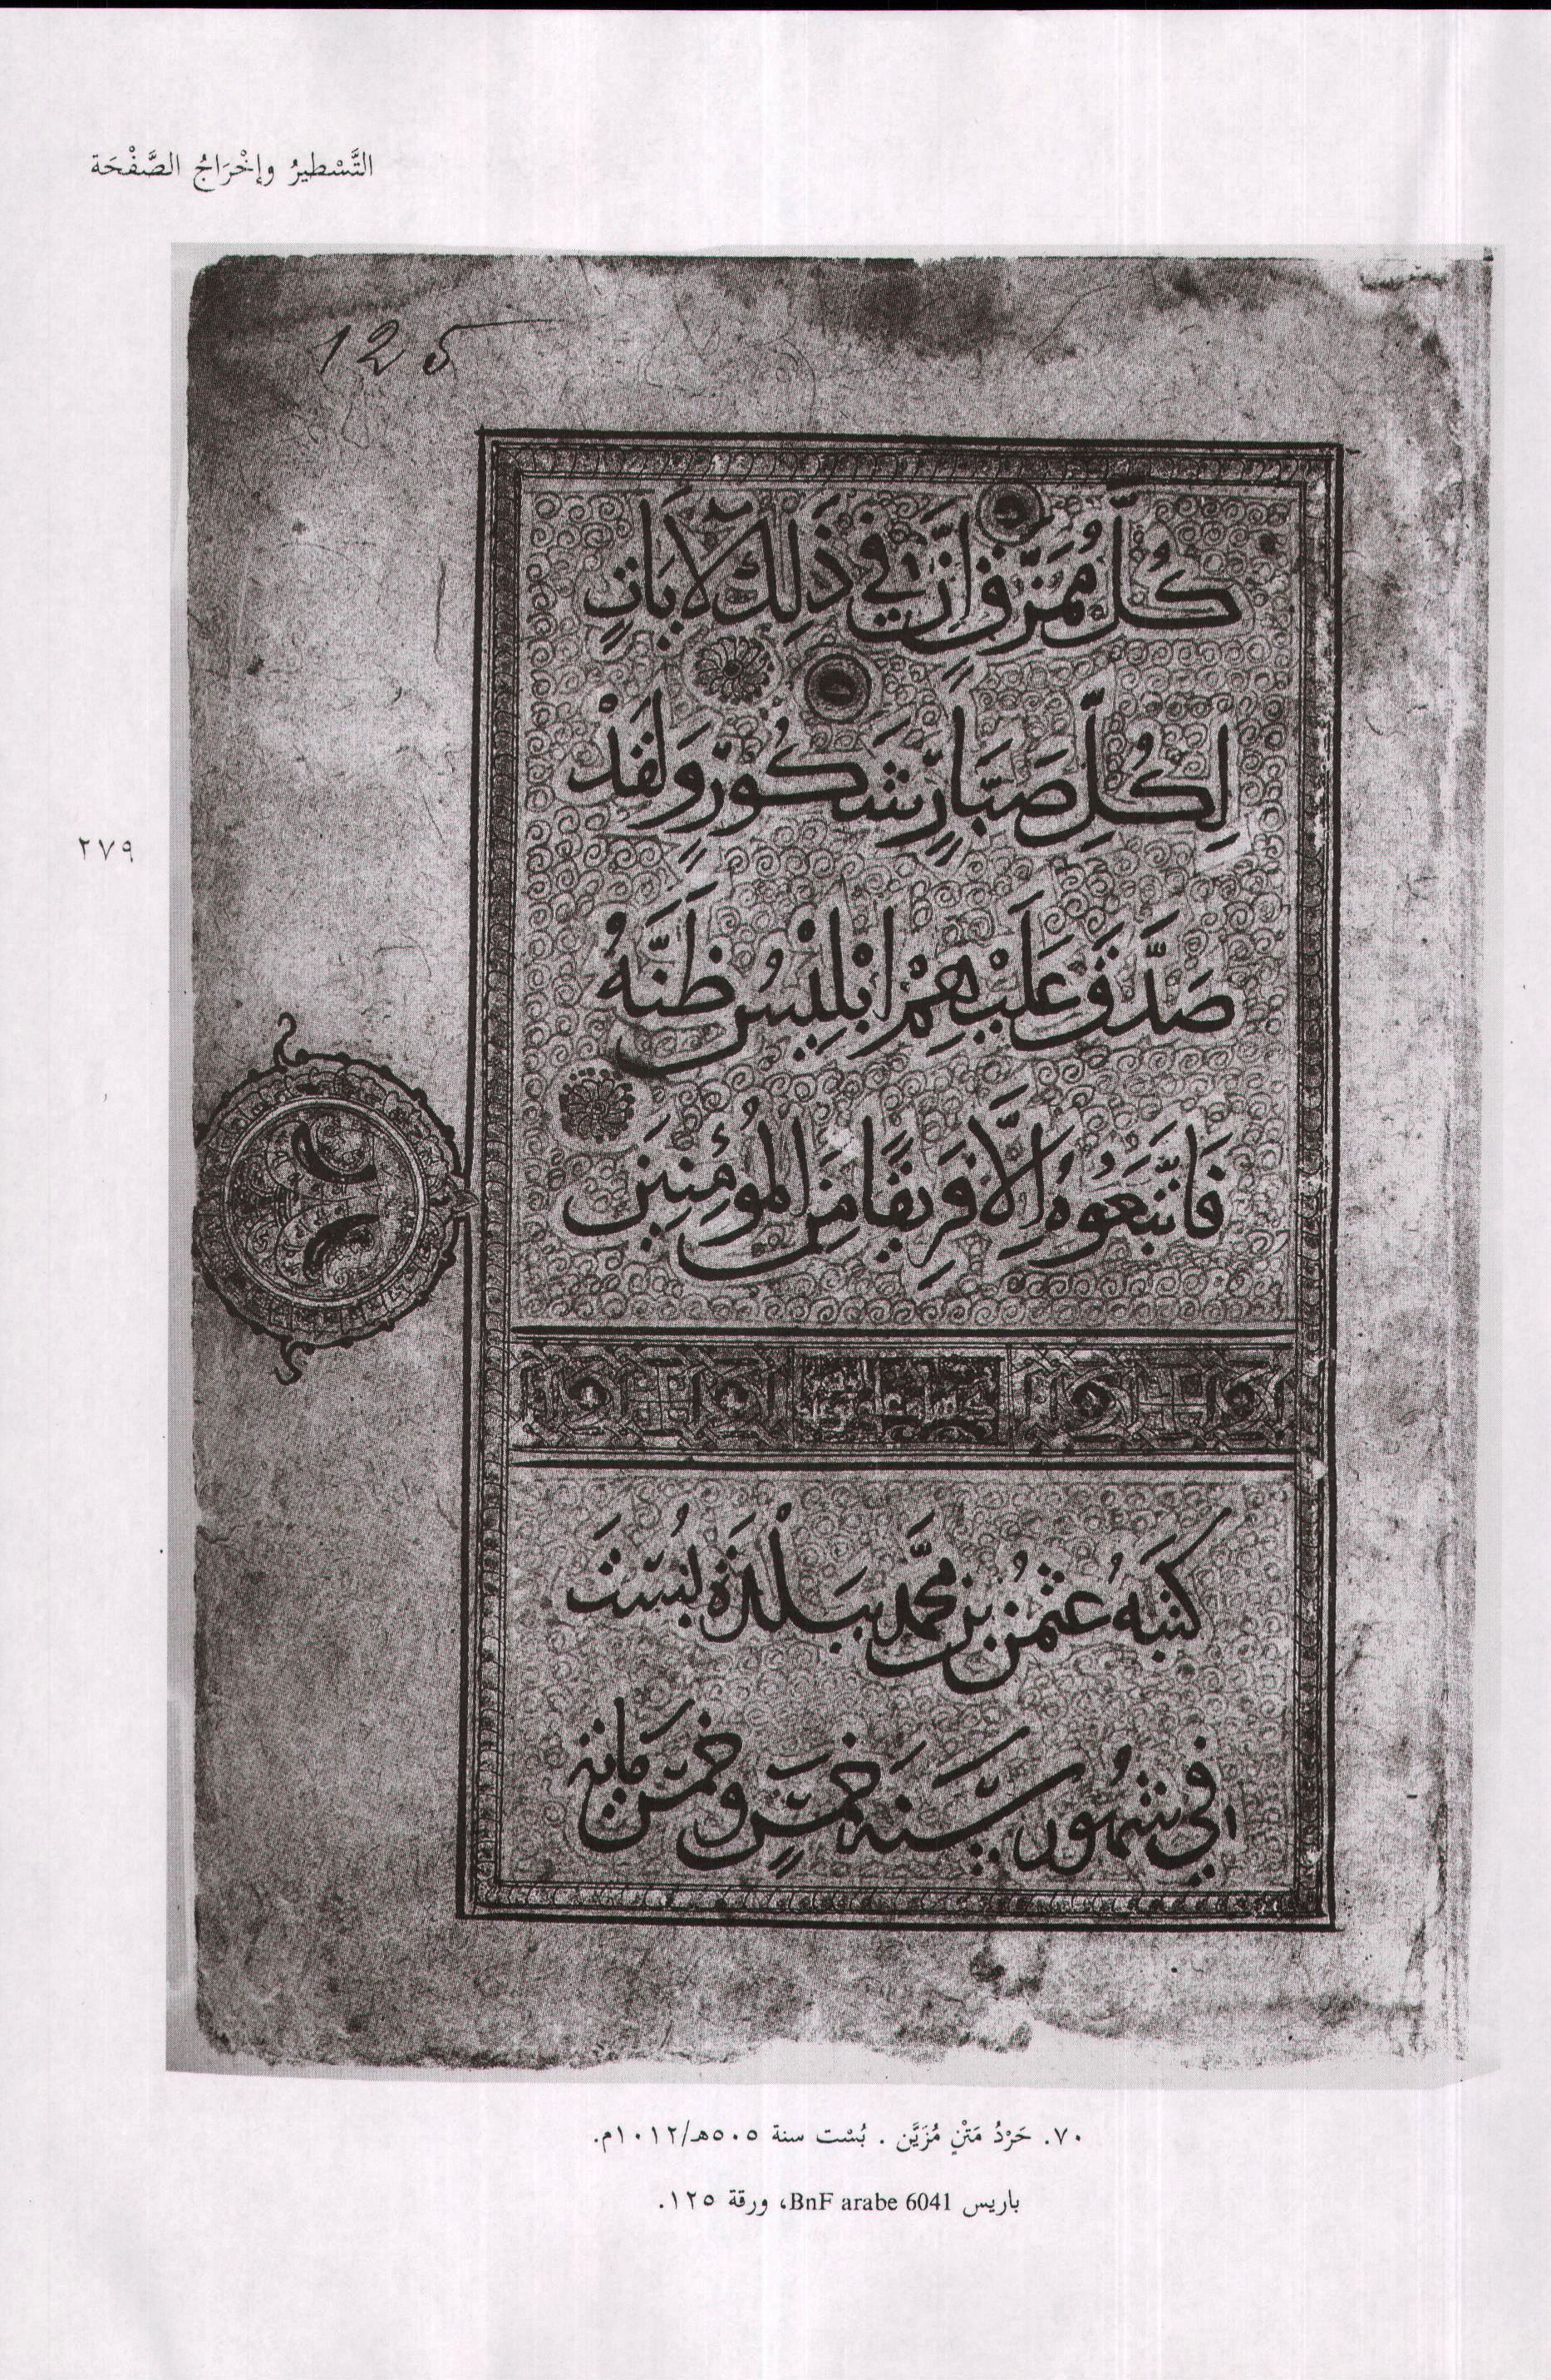 التَّسْطيرُ وإخْرَاجُ الصَّفْحَة
125
كُلَّ مُمَزَّقٍ اِنَّ فِي ذَلِكَ لَآيَاتٍ
لِكُلِّ صَبَّارٍ شَكُورٍ وَلَقَدْ
صَدَّقَ عَلَيْهِمْ اِبْلِيسُ ظَنَّهُ
فَاتَّبَعُوهُ اِلَّا فَرِيقًا مِنَ الْمُؤْمِنِينَ
٢٧٩
كَتَبَهُ عُثْمٰنُ بْنُ مُحَمَّد بِبَلْدَةِ بُسْتَ
فِي شُهُورِ سَنَة خَمْسٍ وَخَمْسِ مائة
٧٠. حَرْدُ مَتْنٍ مُزَيَّن. بُسْت سنة ٥٠٥هـ/١٠١٢م.
باريس BnF arabe 6041، ورقة ١٢٥.